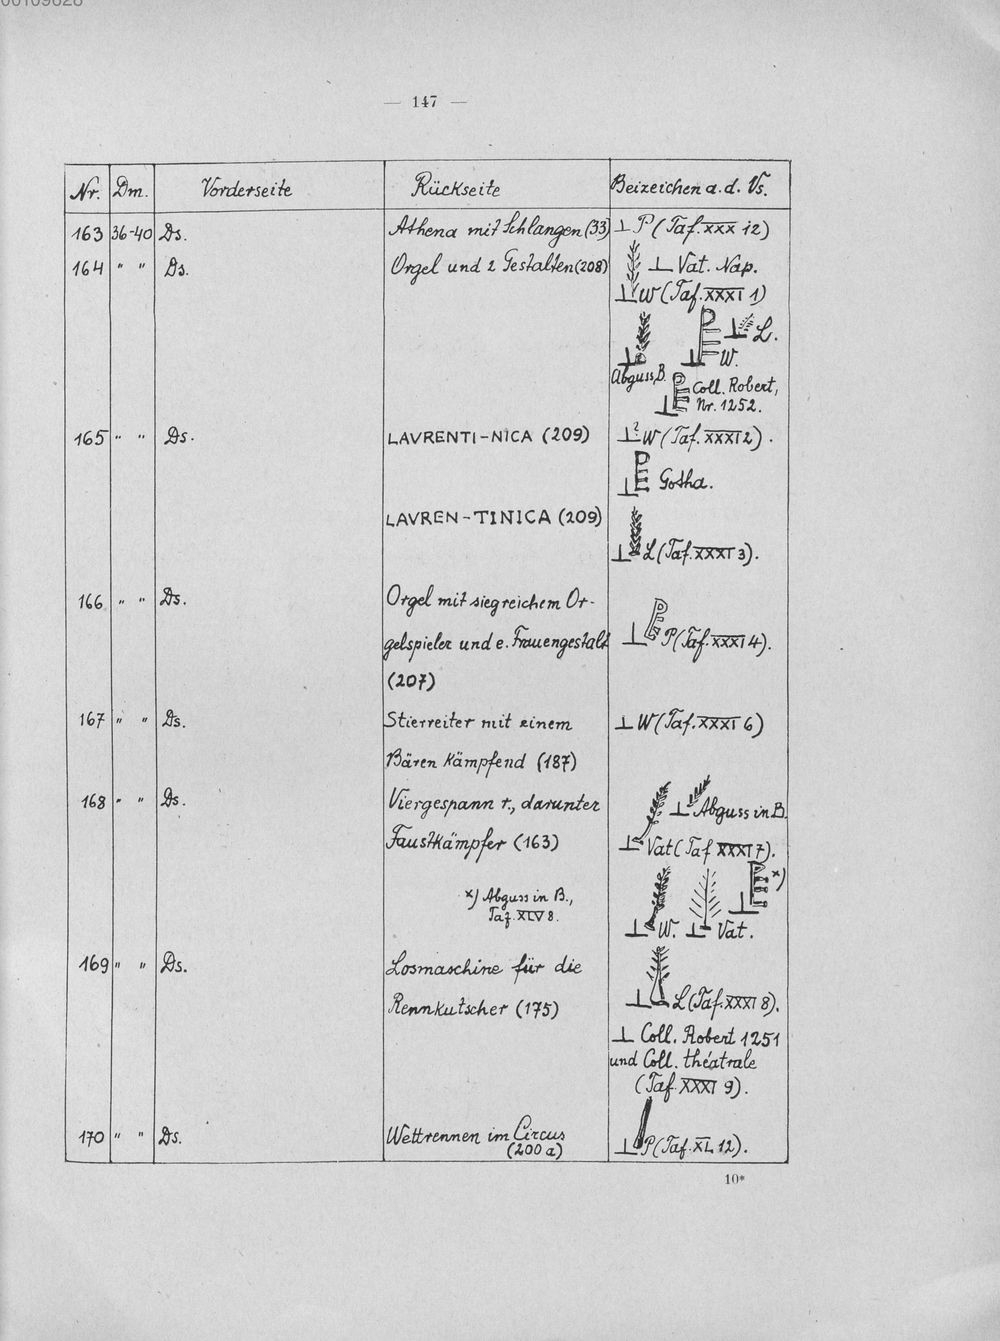 — 147 —
Nr. Dm. Vorderseite Rückseite Beizeichen a. d. Vs.
163 36-40 Ds. Athena mit Schlangen (33) ⊥ P (Taf. XXX 12)
164 " " Ds. Orgel und 2 Gestalten (208) ⊥ Vat. Nap.
⊥ W (Taf. XXXI 1)
⊥ L.
⊥ PE W.
Abguss, B.
⊥ PE Coll. Robert,
Nr. 1252.
165 " " Ds. LAVRENTI-NICA (209) ⊥ ? W (Taf. XXXI 2).
⊥ PE Gotha.
LAVREN-TINICA (209)
⊥ L (Taf. XXXI 3).
166 " " Ds. Orgel mit siegreichem Or-
gelspieler und e. Frauengestalt ⊥ PE P (Taf. XXXI 4).
(207)
167 " " Ds. Stierreiter mit einem ⊥ W (Taf. XXXI 6)
Bären kämpfend (187)
168 " " Ds. Viergespann r., darunter ⊥ Abguss in B.
Faustkämpfer (163) ⊥ Vat (Taf XXXI 7).
x) Abguss in B., ⊥ PE x)
Taf. XLV 8. ⊥ W. ⊥ Vat.
169 " " Ds. Losmaschine für die
Rennkutscher (175) ⊥ L (Taf. XXXI 8).
⊥ Coll. Robert 1251
und Coll. théatrale
(Taf. XXXI 9).
170 " " Ds. Wettrennen im Circus
(200 a) ⊥ P (Taf. XL 12).
10*